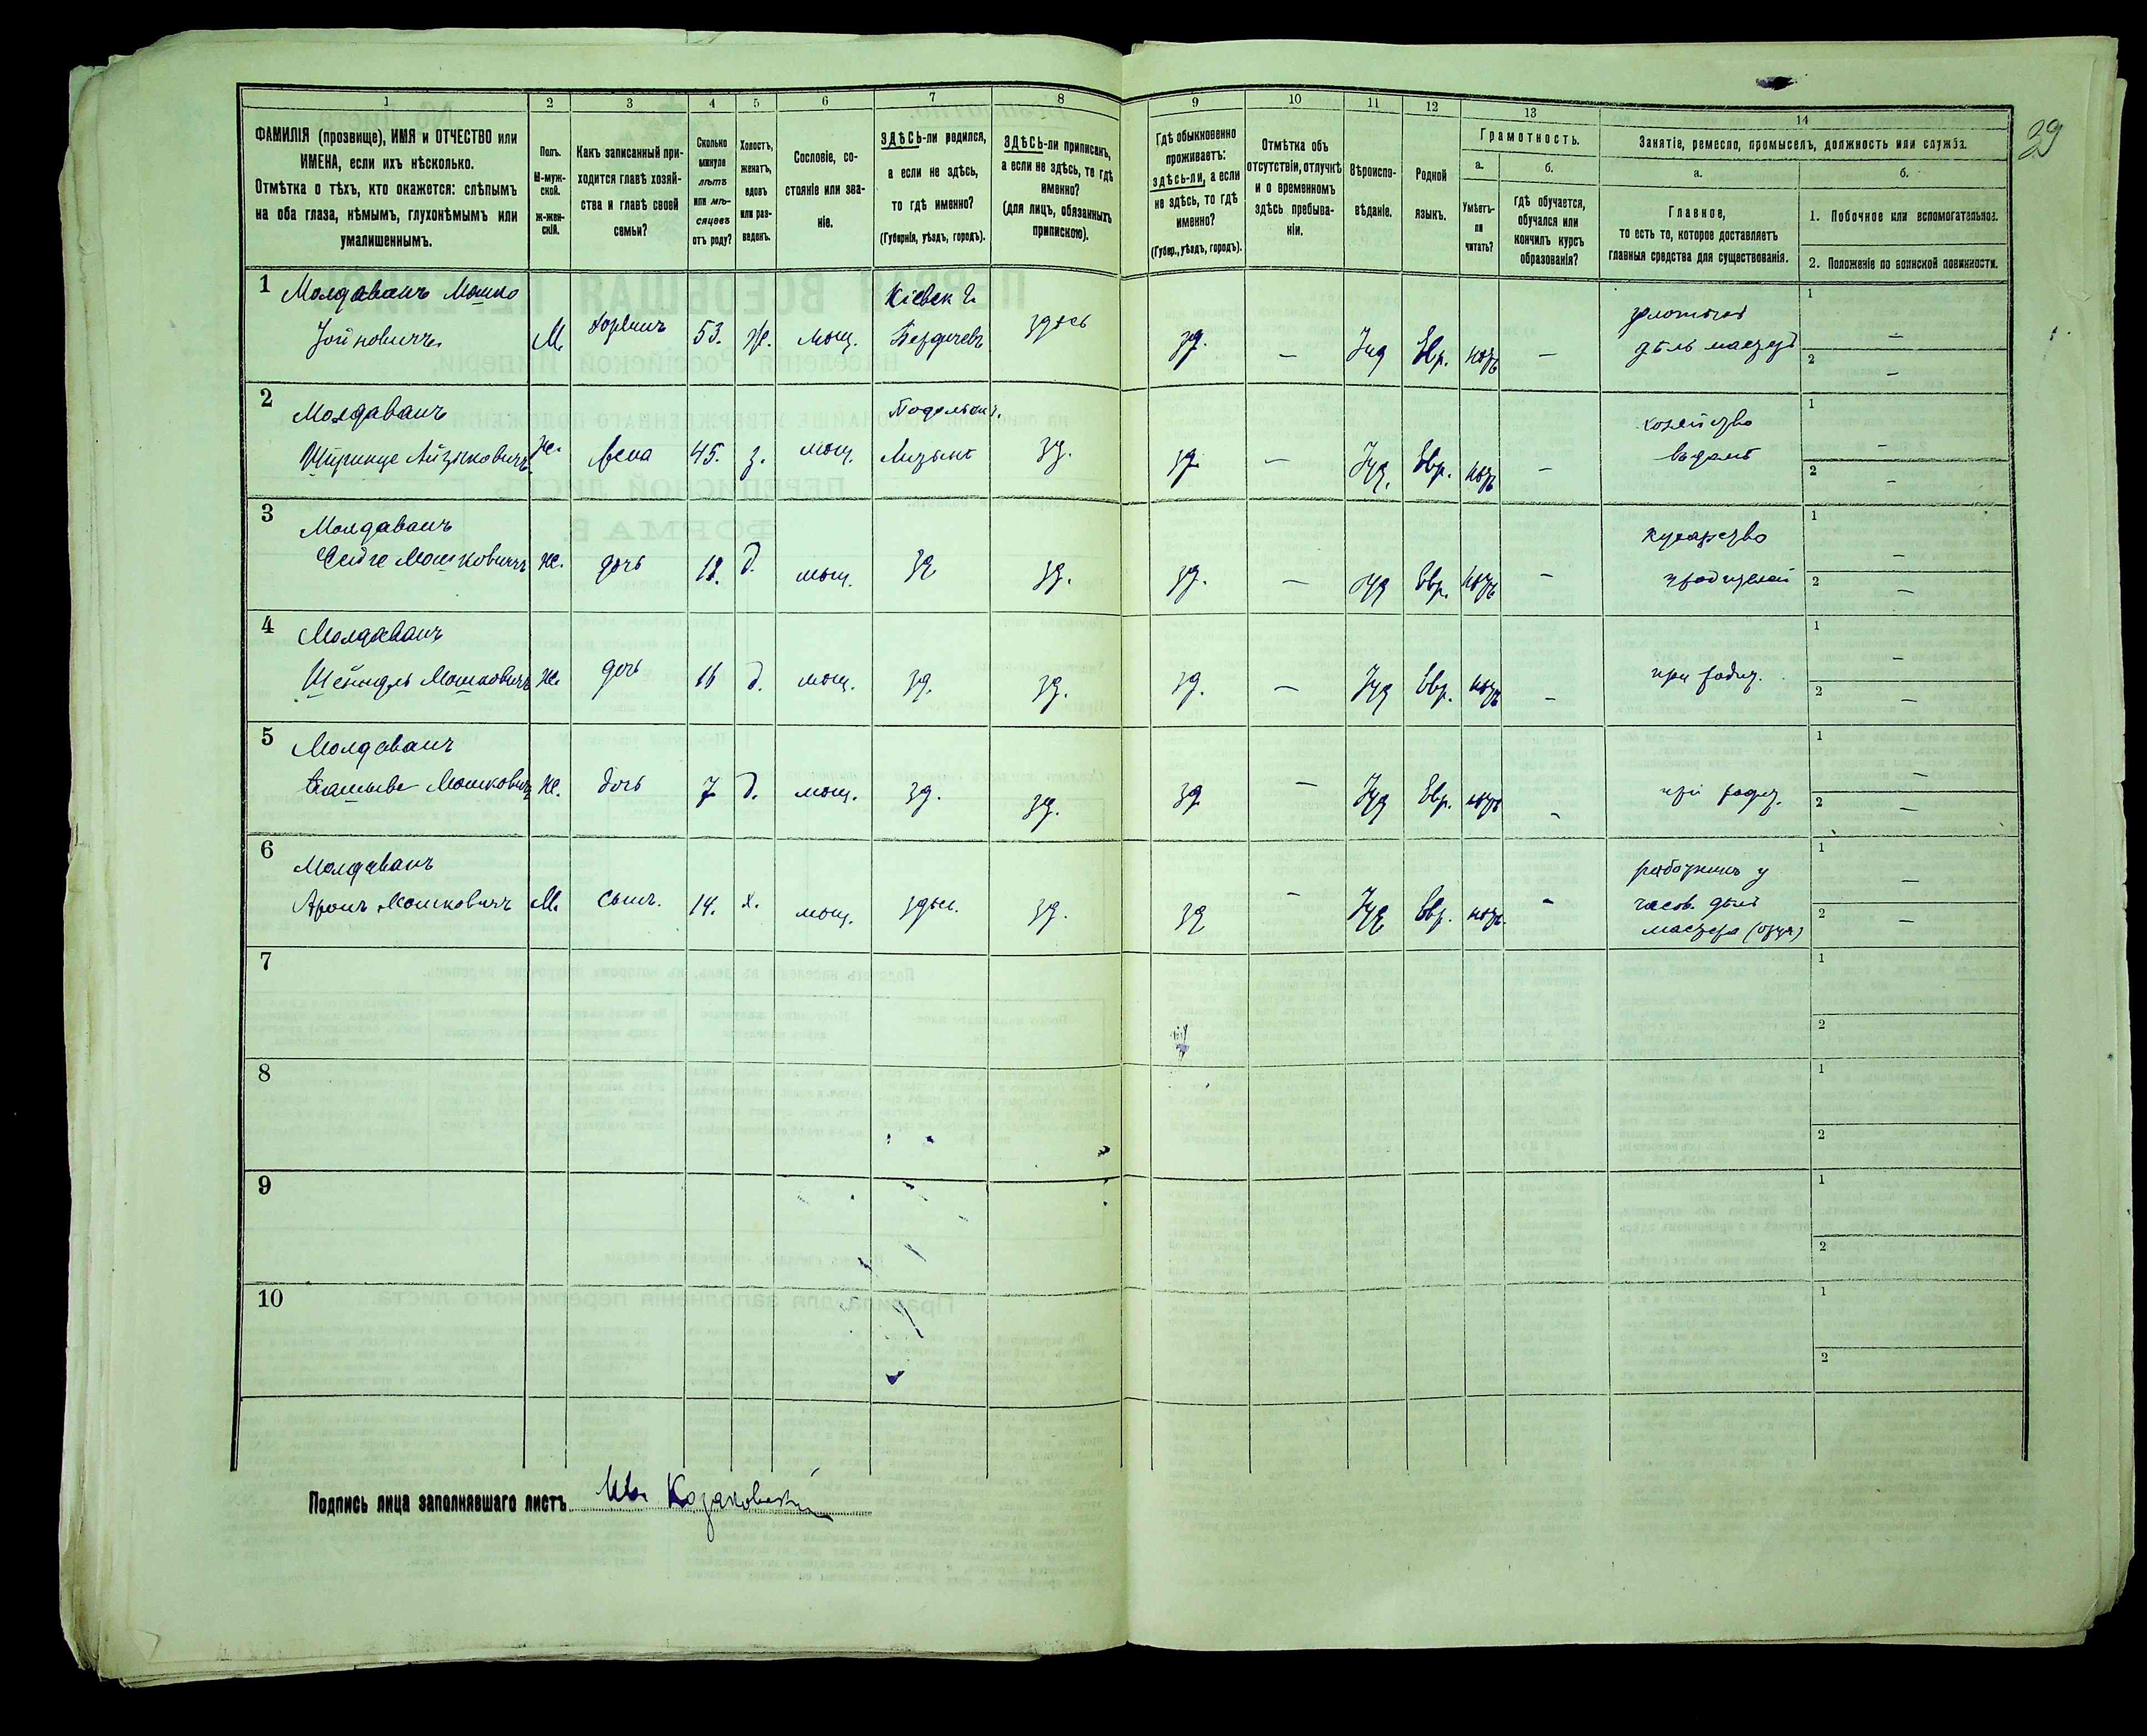 1 2 3 4 5 6 7 8 9 10 11 12 13 14
39
ФАМИЛІЯ (прозвище), ИМЯ и ОТЧЕСТВО или
ИМЕНА, если ихъ нѣсколько.
Отмѣтка о тѣхъ, кто окажется: слѣпымъ
на оба глаза, нѣмымъ, глухонѣмымъ или
умалишеннымъ.
Полъ.
М-муж-
ской.
ж-жен-
скій.
Какъ записанный при-
ходится главѣ хозяй-
ства и главѣ своей
семьи?
Сколько
минуло
лѣтъ
или мѣ-
сяцевъ
отъ роду?
Холостъ,
женатъ,
вдовъ
или раз-
веденъ.
Сословіе, со-
стояніе или зва-
ніе.
ЗДѢСЬ-ли родился,
а если не здѣсь,
то гдѣ именно?
(Губернія, уѣздъ, городъ).
ЗДѢСЬ-ли приписанъ,
а если не здѣсь, то гдѣ
именно?
(для лицъ, обязанныхъ
припискою).
Гдѣ обыкновенно
проживаетъ:
здѣсь-ли, а если
не здѣсь, то гдѣ
именно?
(Губер., уѣздъ, городъ).
Отмѣтка объ
отсутствіи, отлучкѣ
и о временномъ
здѣсь пребыва-
ніи.
Вѣроиспо-
вѣданіе.
Родной
языкъ.
Грамотность.
а.
Умѣетъ-
ли
читать?
б.
гдѣ обучается,
обучался или
кончилъ курсъ
образованія?
Занятіе, ремесло, промыселъ, должность или служба.
а.
Главное,
то есть то, которое доставляетъ
главныя средства для существованія.
б.
1. Побочное или вспомогательное.
2. Положеніе по воинской повинности.
1 Молдаванъ Мошко
Іойновичъ
М. хозяинъ 53. ж. мѣщ.
Кіевск г.
Бердичевъ
здѣсь зд. — Іуд Евр. нѣтъ —
дѣлъ мастеръ
1 —
2 —
2 Молдаванъ
Айзиковичъ
ж. жена 45. з. мѣщ.
Подольск г.
зд. зд. — Іуд. Евр. нѣтъ —
хозяйство
1 —
2 —
3 Молдаванъ
Мошковичъ
ж. дочь 18. д. мѣщ. зд зд. зд. — Іуд Евр. нѣтъ —
1 —
2 —
4 Молдаванъ
Шейндль Мошковичъ
ж. дочь 16 д. мѣщ. зд. зд. зд. — Іуд Евр. нѣтъ —
при родит.
1 —
2 —
5 Молдаванъ
Мошковичъ
ж. дочь 7 д. мѣщ. зд. зд. зд — Іуд Евр. нѣтъ —
при родит.
1 —
2 —
6 Молдаванъ
Аронъ Мошковичъ
М. сынъ. 14. х. мѣщ. здѣсь. зд. зд — Іуд Евр. нѣтъ. —
работникъ у
часов. дѣлъ
мастера (отца)
1 —
2 —
7 1
2
8 1
2
9 1
2
10 1
2
Подпись лица заполнявшаго листъ Козаковскій